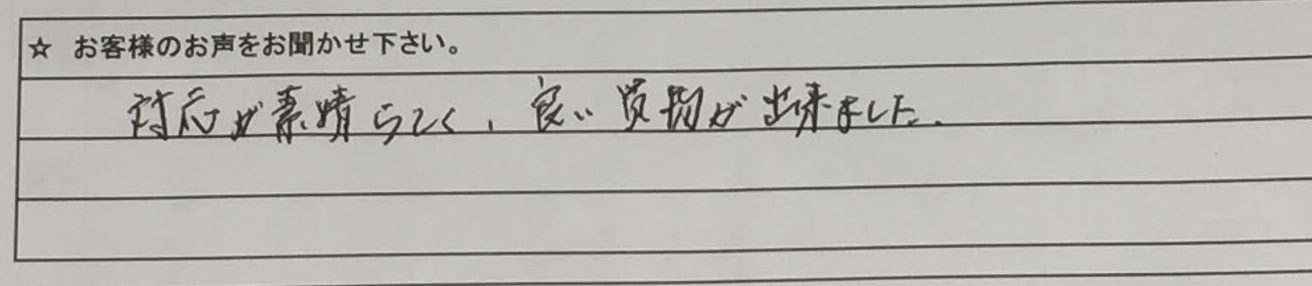 ☆ お客様のお声をお聞かせ下さい。
対応が素晴らしく、良い買物が出来ました。